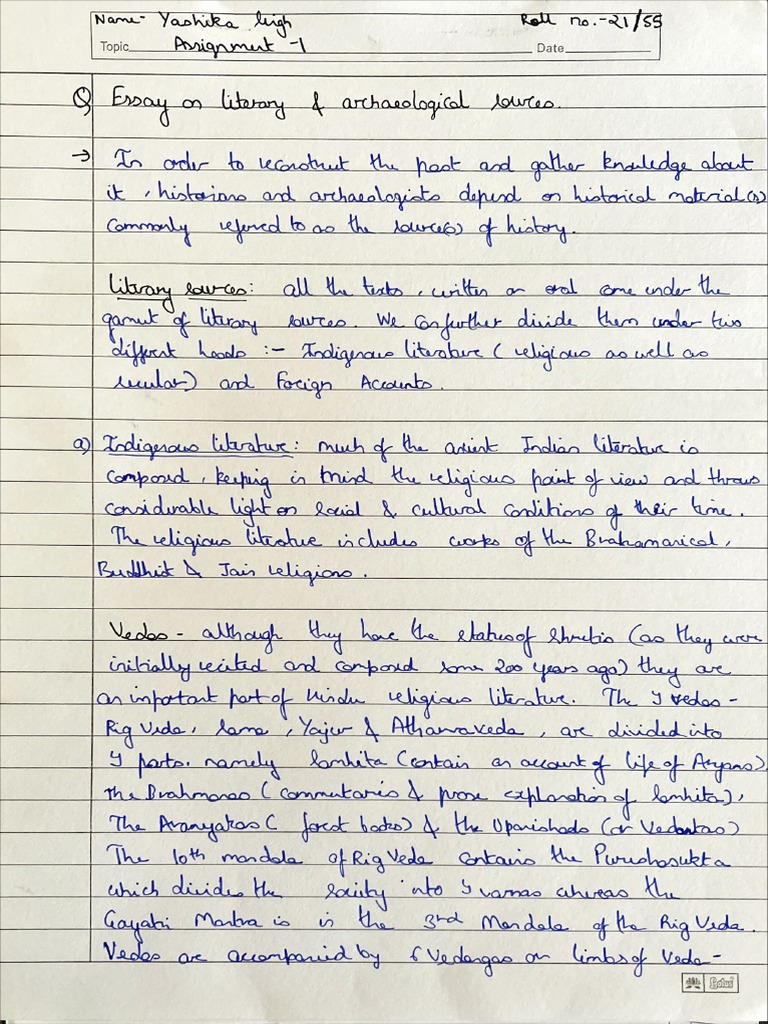 Name- Yashika Singh Roll no.-21/55
Topic Assignment -1 Date
Q) Essay on literary & archaeological sources.
→ In order to reconstruct the past and gather knowledge about
it, historians and archaeologists depend on historical material(s)
commonly referred to as the source(s) of history.
Literary sources: all the texts, written or oral come under the
gamut of literary sources. We can further divide them under two
different heads :- Indigenous literature (religious as well as
secular) and Foreign Accounts.
a) Indigenous literature: much of the ancient Indian literature is
composed, keeping in mind the religious point of view and throws
considerable light on social & cultural conditions of their time.
The religious literature includes works of the Brahamanical,
Buddhist & Jain religions.
Vedas - although they have the status of Shrutis (as they were
initially recited and composed some 200 years ago) they are
an important part of Hindu religious literature. The 4 vedas -
Rig Veda, Sama, Yajur & Atharvaveda, are divided into
4 parts. namely Samhita (contain an account of life of Aryans),
the Brahmanas (commentaries & prose explanation of Samhita),
The Aranyakas ( forest books) & the Upanishads (or Vedantas)
The 10th mandala of Rig Veda contains the Purushasukta
which divides the society into 4 varnas whereas the
Gayatri Mantra is in the 3rd Mandala of the Rig Veda.
Vedas are accompanied by 6 Vedangas or limbs of Veda-
Lotus